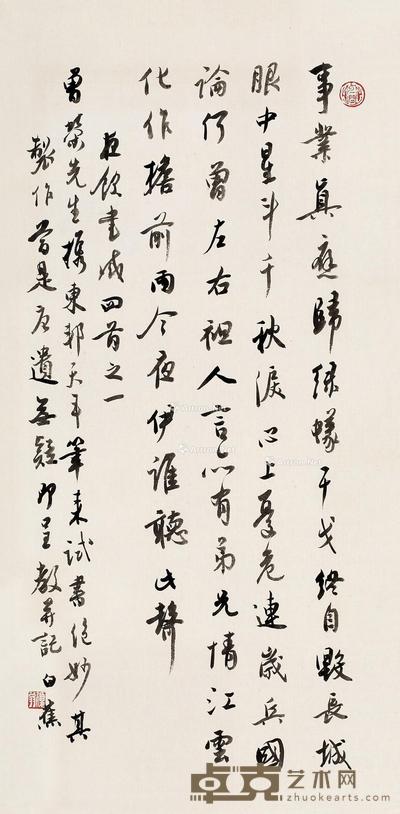 事業真應歸綠蟻干戈終自毀長城
眼中星斗千秋淚心上憂危連歲兵國
論何曾左右袒人言亦有弟兄情江雲
化作檐前雨今夜伊誰聽此聲
夜飲書感四首之一
曾榮先生攜東邦天平筆来試書絕妙其
製作當是唐遺無疑即呈教并記 白蕉
卓克艺术网
zhuokearts.com